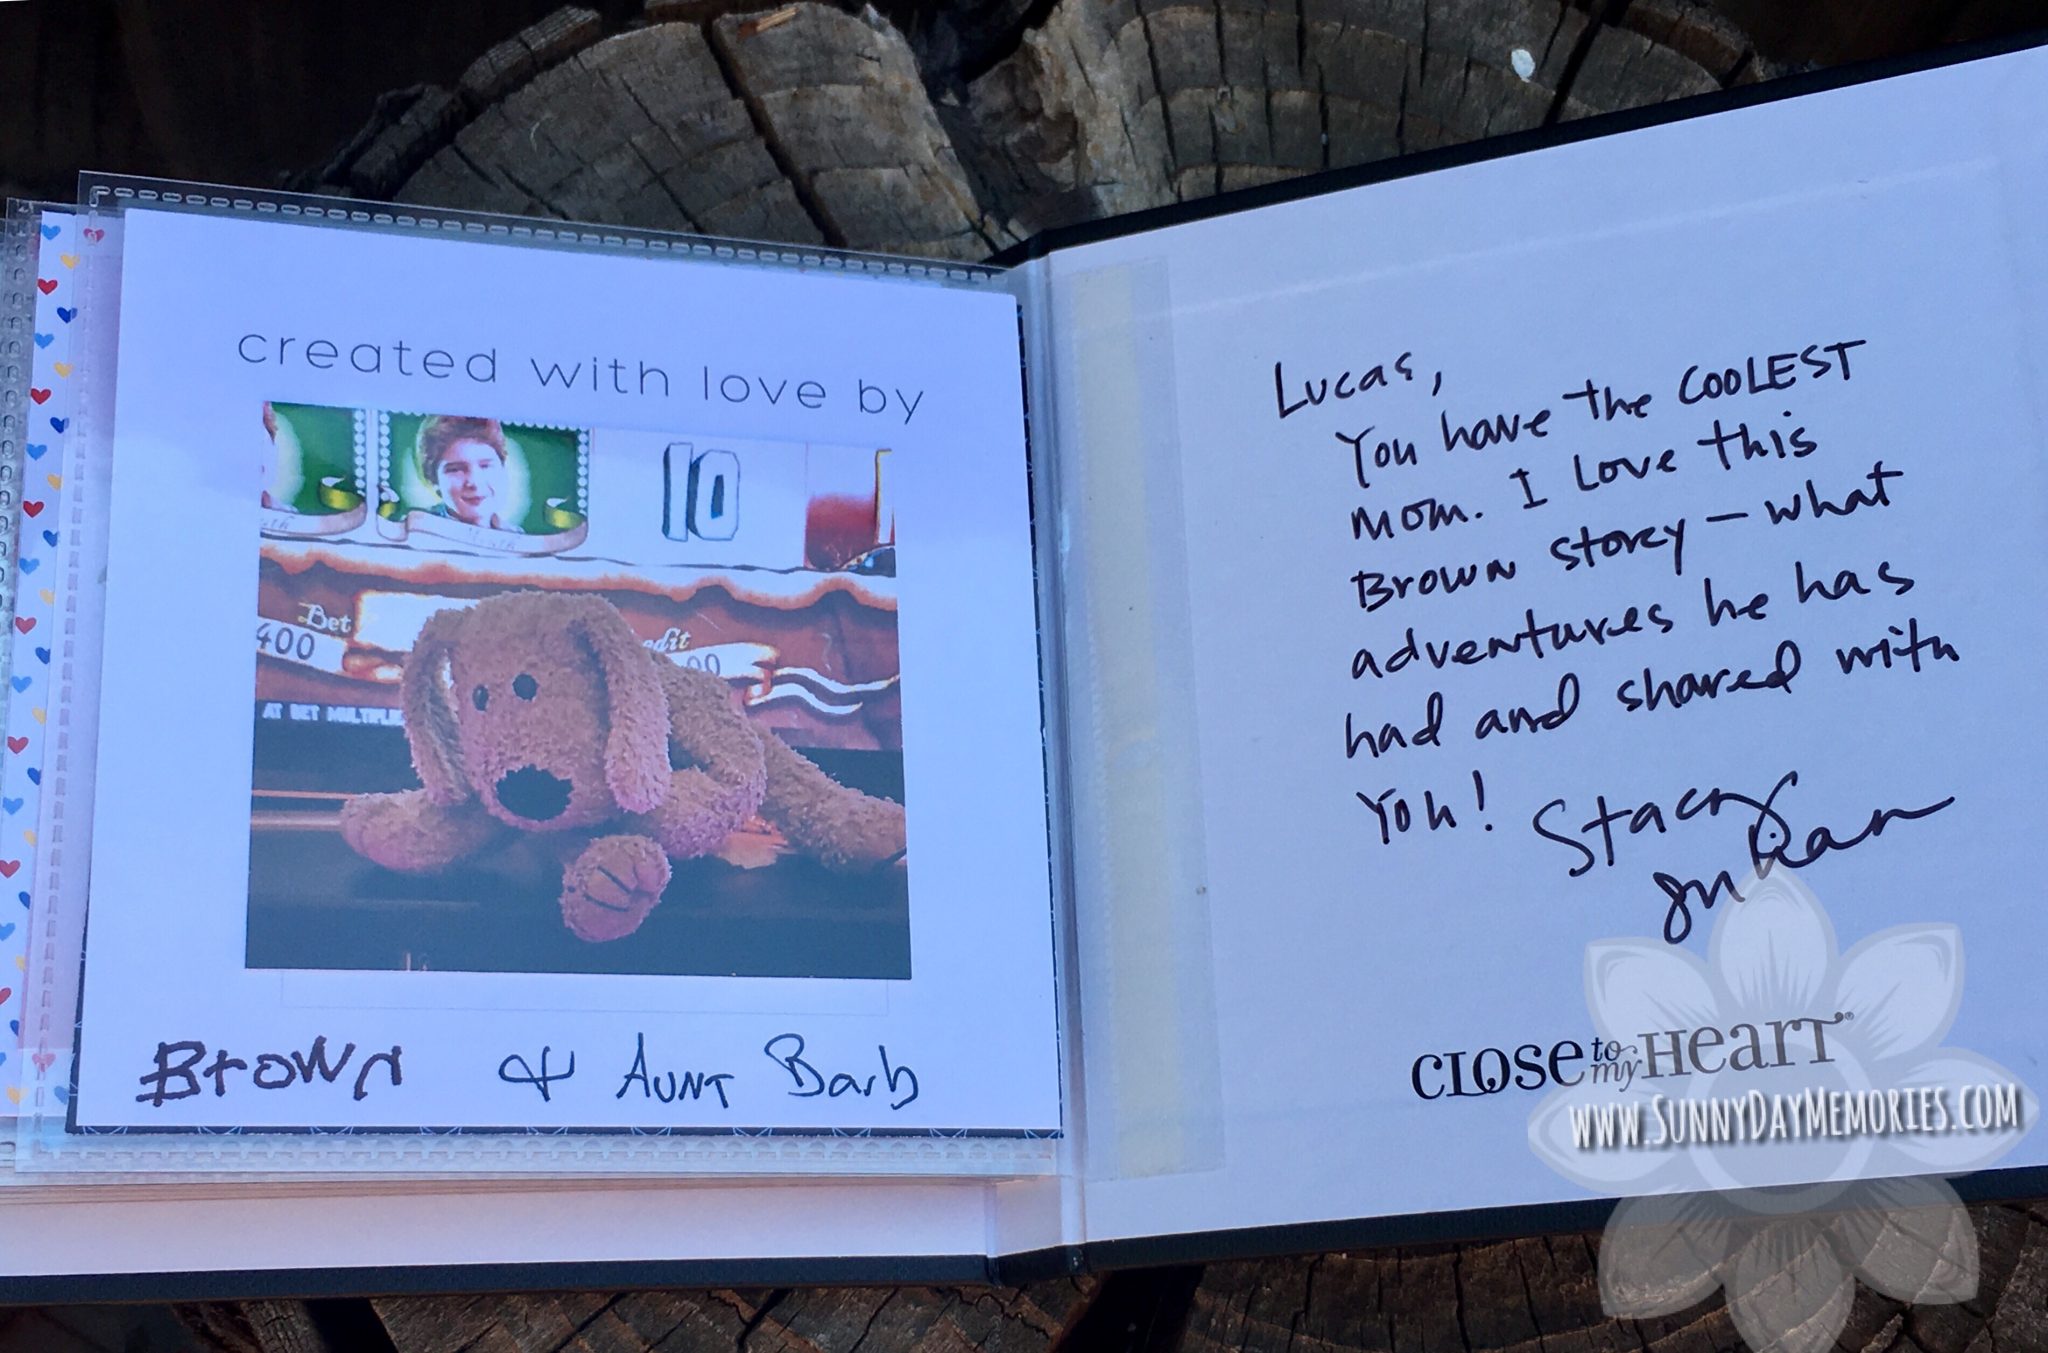 created with love by
10
Bet
400
AT BET MULTIPLI
Brown & Aunt Barb
Lucas,
You have the COOLEST
mom. I love this
Brown story — what
adventures he has
had and shared with
you!
Stacy
Julian
CLOSE to my HEART®
www.SunnyDayMemories.com